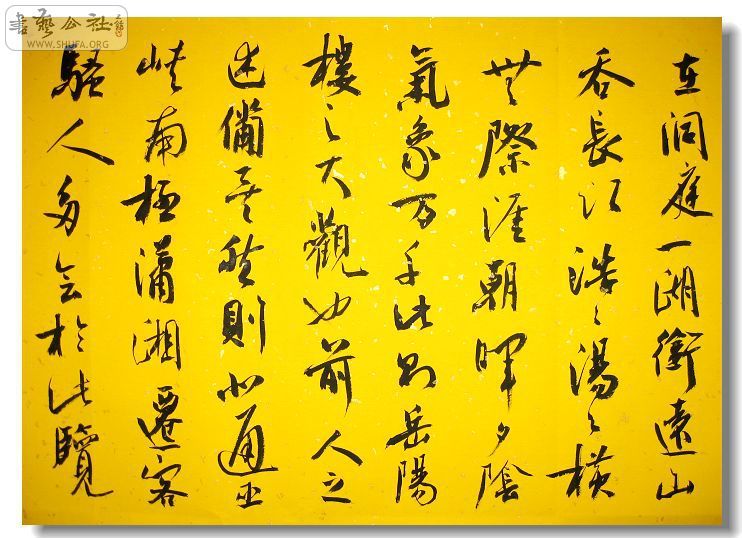 書藝公社
WWW.SHUFA.ORG
在洞庭一湖銜遠山
吞長江浩〻湯〻橫
無際涯朝暉夕陰
氣象万千此則岳陽
樓之大觀也前人之
述備矣然則北通巫
峽南極瀟湘遷客
騷人多会於此覽